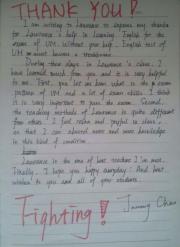 THANK YOU !
I am writing to Lawrence to express my thanks
for Lawrence's help in learning English for the
exam of UM. Without your help, English test of
UM
During these days in Lawrence's class, I
have learned much from you and it is very helpful
to me. First, you let me know what is the exam
pattern of UM and a lot of exam skills. I think
it is very important to pass the exam. Second,
the teaching methods of Lawrence is quite different
from others. I feel relax and joyful in class,
so that I can absorb more and more knowledge
in this kind of condition.
Lawrence is the one of best teacher I've met.
Finally, I hope you happy everyday! And best
wishes to you and all of your students.
Fighting!